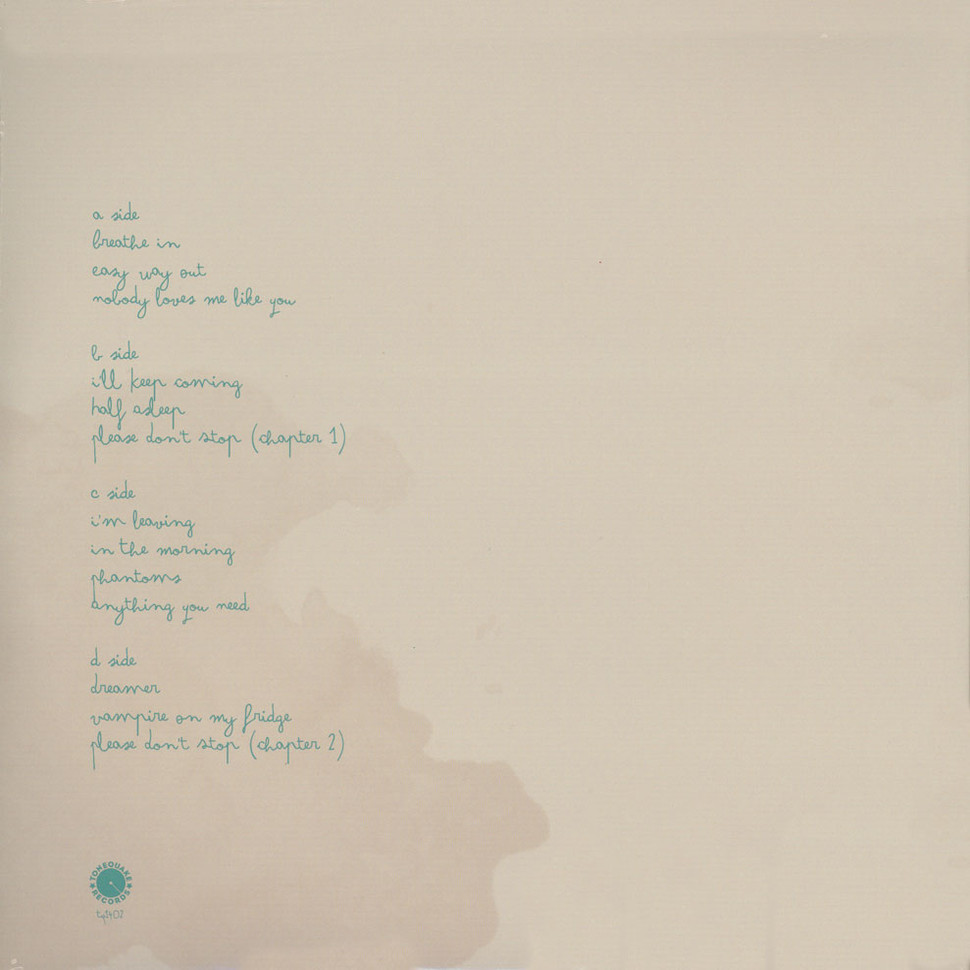 a side
breathe in
easy way out
nobody loves me like you
b side
i'll keep coming
half asleep
please don't stop (chapter 1)
c side
i'm leaving
in the morning
phantoms
anything you need
d side
dreamer
vampire on my fridge
please don't stop (chapter 2)
TONEQUAKE
RECORDS